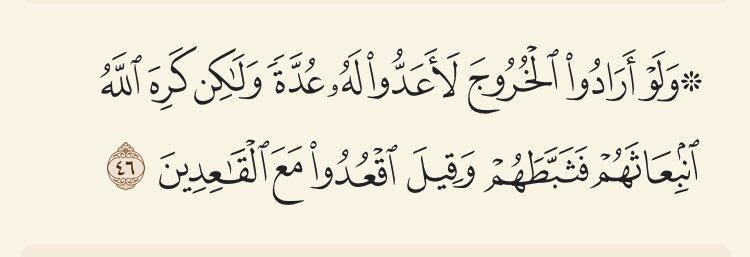 ۞وَلَوْ أَرَادُوا۟ ٱلْخُرُوجَ لَأَعَدُّوا۟ لَهُۥ عُدَّةً وَلَـٰكِن كَرِهَ ٱللَّهُ
ٱنۢبِعَاثَهُمْ فَثَبَّطَهُمْ وَقِيلَ ٱقْعُدُوا۟ مَعَ ٱلْقَـٰعِدِينَ ٤٦